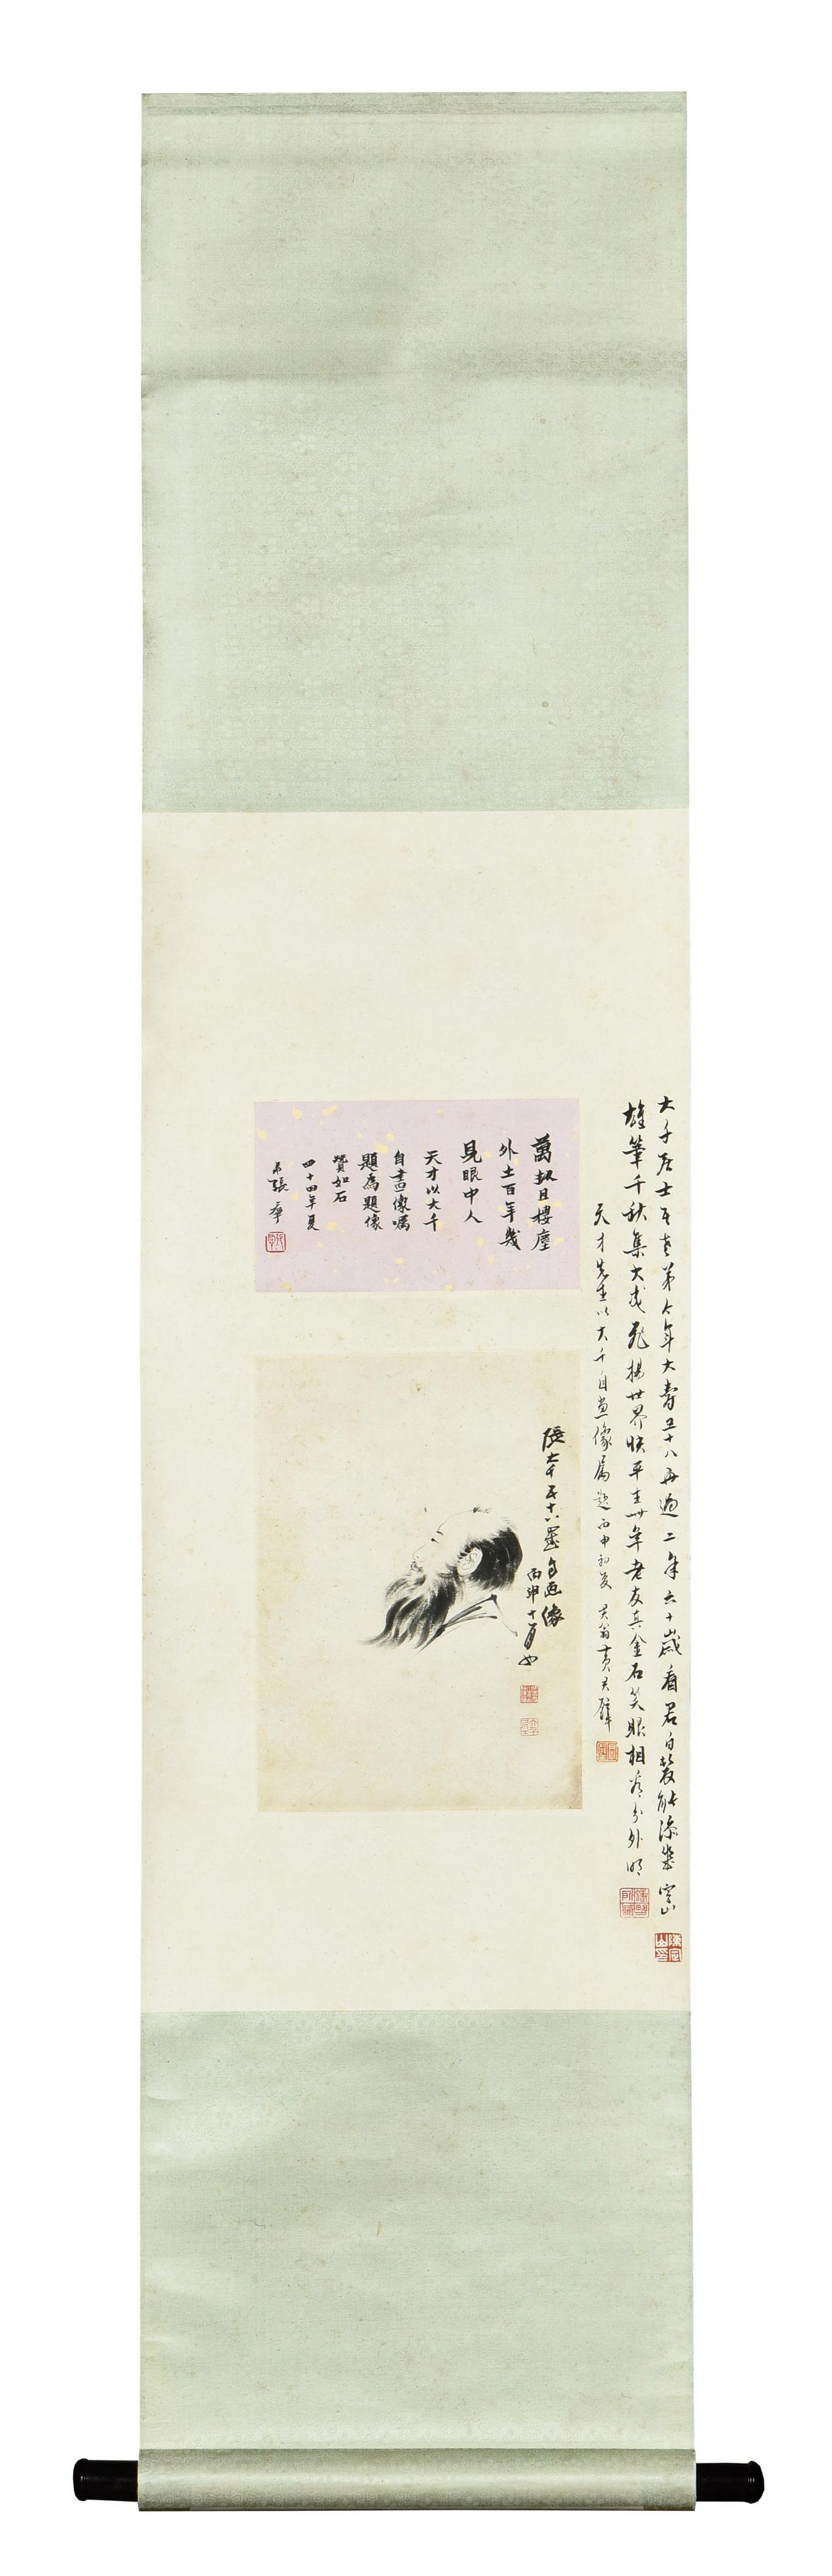 大千居士吾老弟今年大壽五十八再過二年六十歲看君白髮能添幾 定山
雄筆千秋集大成飛揚世界快平生卅年老友真金石笑眼相看分外明
天才先生以大千自畫像屬題丙申初夏 君翁黃君璧
萬劫目樓塵
外土百年幾
見眼中人
天才以大千
自畫像囑
題為題像
贊如石
四十四年夏
弟張
張大千五十八歲自畫像
丙申十月
陳定山印